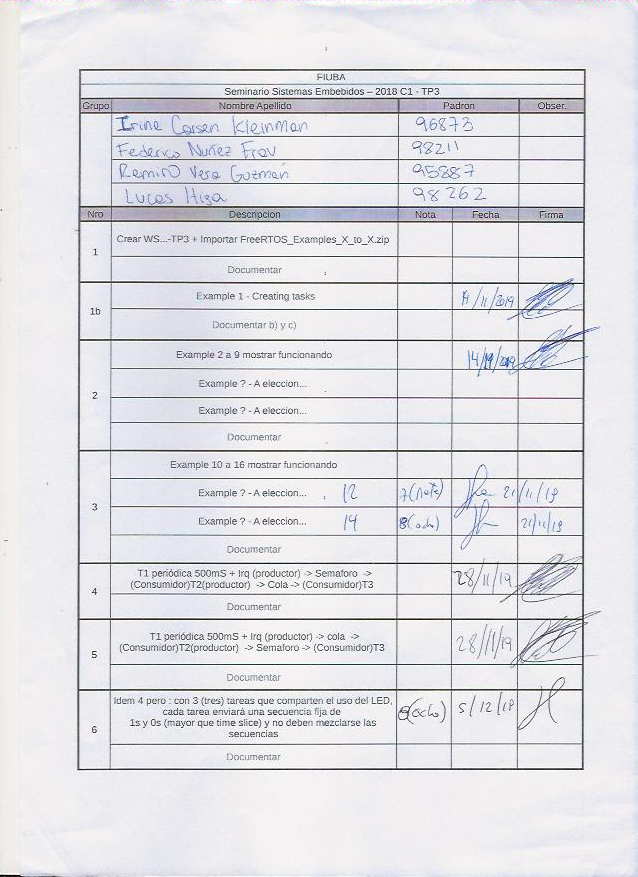 FIUBA
Seminario Sistemas Embebidos – 2018 C1 - TP3
Grupo Nombre Apellido Padron Obser.
Irina Carsen Kleinman 96873
Federico Nuñez Frau 98211
Ramiro Vera Guzmán 95887
Lucas Hisa 98262
Nro Descripcion Nota Fecha Firma
1 Crear WS...-TP3 + Importar FreeRTOS_Examples_X_to_X.zip
Documentar
1b Example 1 - Creating tasks 14/11/2019
Documentar b) y c)
2 Example 2 a 9 mostrar funcionando 14/11/2019
Example ? - A eleccion...
Example ? - A eleccion...
Documentar
3 Example 10 a 16 mostrar funcionando
Example ? - A eleccion... 12 7 21/11/19
Example ? - A eleccion... 14 8(ocho) 21/11/19
Documentar
4 T1 periódica 500mS + Irq (productor) -> Semaforo ->
(Consumidor)T2(productor) -> Cola -> (Consumidor)T3 28/11/19
Documentar
5 T1 periódica 500mS + Irq (productor) -> cola ->
(Consumidor)T2(productor) -> Semaforo -> (Consumidor)T3 28/11/19
Documentar
6 Idem 4 pero : con 3 (tres) tareas que comparten el uso del LED,
cada tarea enviará una secuencia fija de
1s y 0s (mayor que time slice) y no deben mezclarse las
secuencias 8(ocho) 5/12/19
Documentar